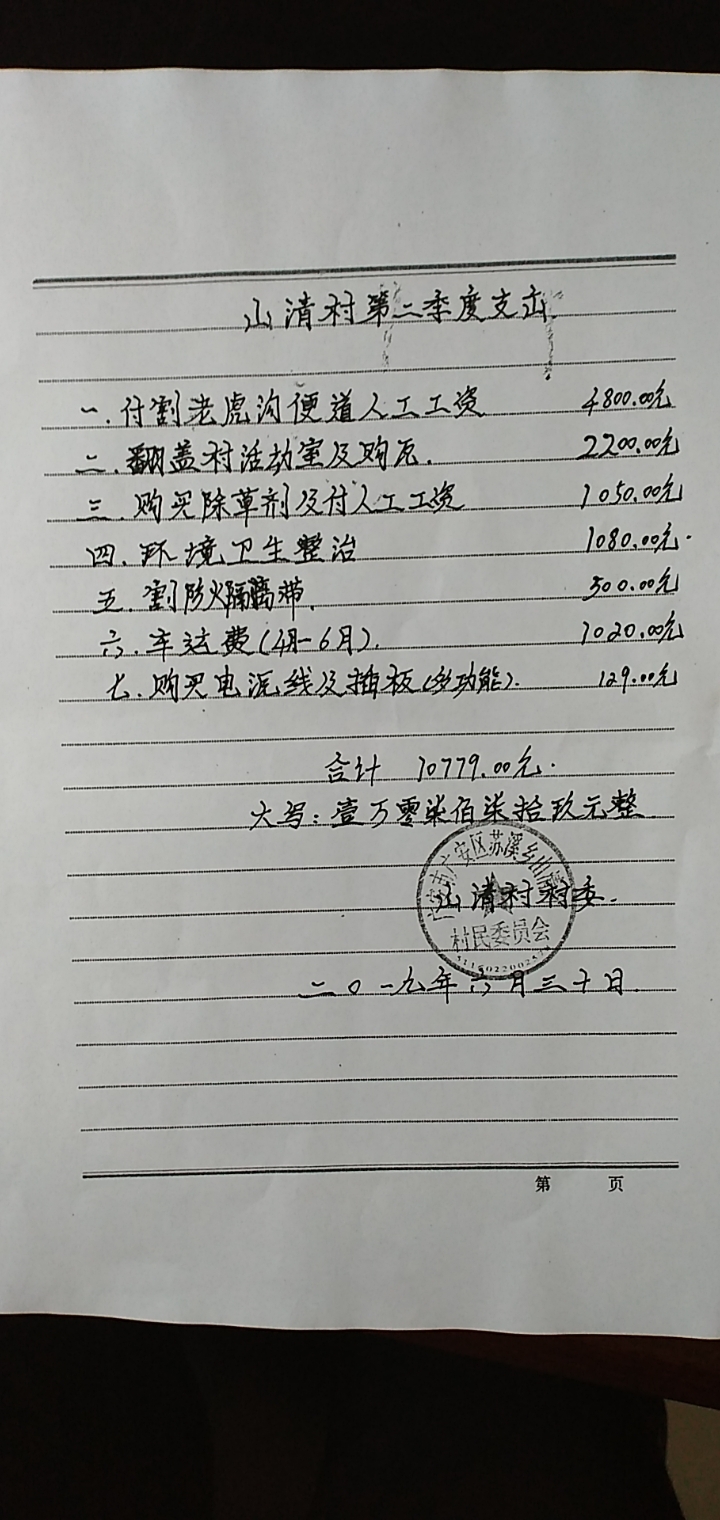 山清村第二季度支出
一.付割老虎沟便道人工工资 4800.00元
二.翻盖村活动室及购瓦. 2200.00元
三.购买除草剂及付人工工资 1050.00元
四.环境卫生整治 1080.00元.
五.割防火隔离带. 500.00元
六.车达费(4月-6月). 1020.00元
七.购买电源线及插板(多功能). 129.00元
合计 10779.00元.
大写:壹万零柒佰柒拾玖元整
广安市广安区苏溪乡山清
山清村村委.
村民委员会
二〇一九年六月三十日.
第 页